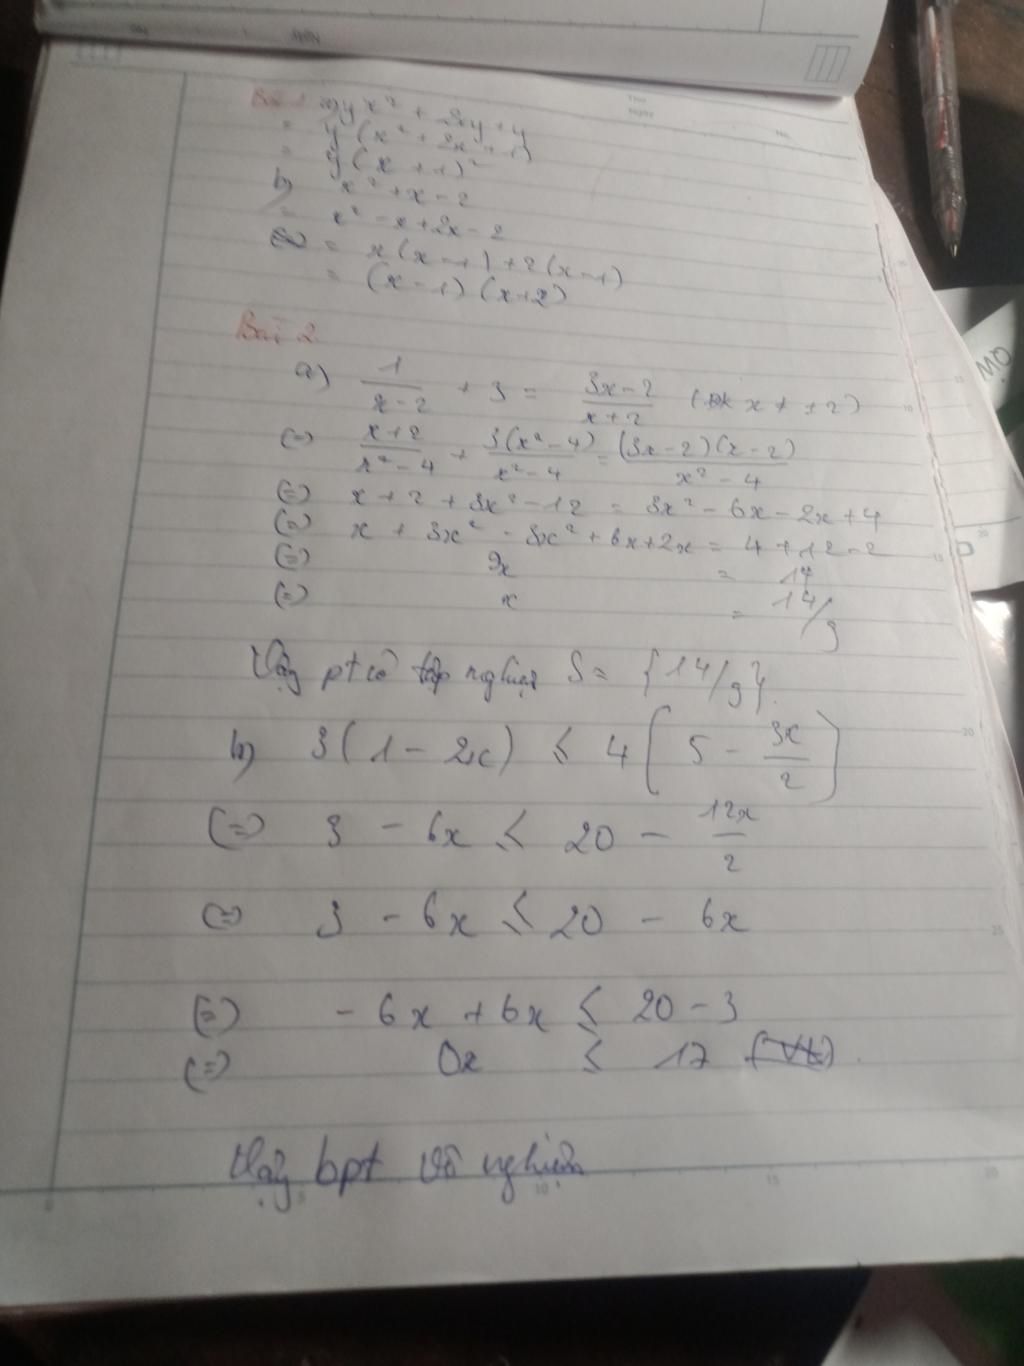 Bài 1 a) yx² + 2xy + y
= y(x² + 2x + 1)
= y(x + 1)²
b) x² + x - 2
= x² - x + 2x - 2
= x(x - 1) + 2(x - 1)
= (x - 1)(x + 2)
Bài 2
a) 1/(x - 2) + 3 = (3x - 2)/(x + 2) (đk x ≠ ±2)
(=) (x + 2)/(x² - 4) + 3(x² - 4)/(x² - 4) = (3x - 2)(x - 2)/(x² - 4)
(=) x + 2 + 3x² - 12 = 3x² - 6x - 2x + 4
(=) x + 3x² - 3x² + 6x + 2x = 4 + 12 - 2
(=) 9x = 14
(=) x = 14/9
Vậy pt có tập nghiệm S = {14/9}.
b) 3(1 - 2x) ≤ 4(5 - 3x/2)
(=) 3 - 6x ≤ 20 - 12x/2
(=) 3 - 6x ≤ 20 - 6x
(=) -6x + 6x ≤ 20 - 3
(=) 0x ≤ 17
Vậy bpt vô nghiệm